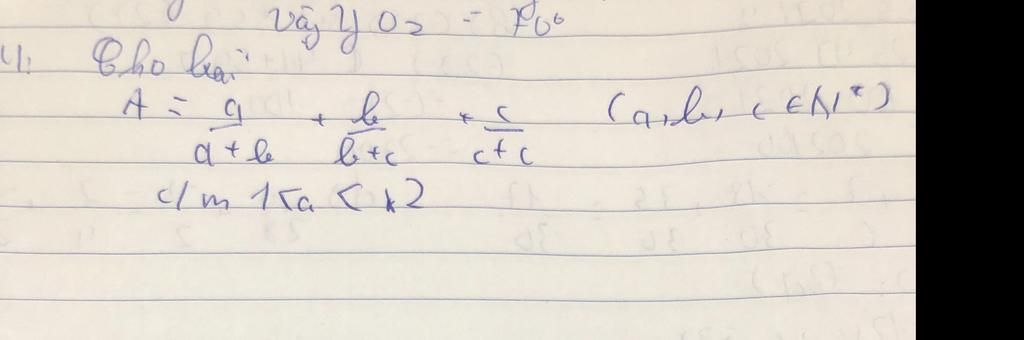 Vậy y O2 =
4. Cho bài
A = a/a+b + b/b+c + c/c+c (a, b, c ∈ N*)
c/m 1<a < 2